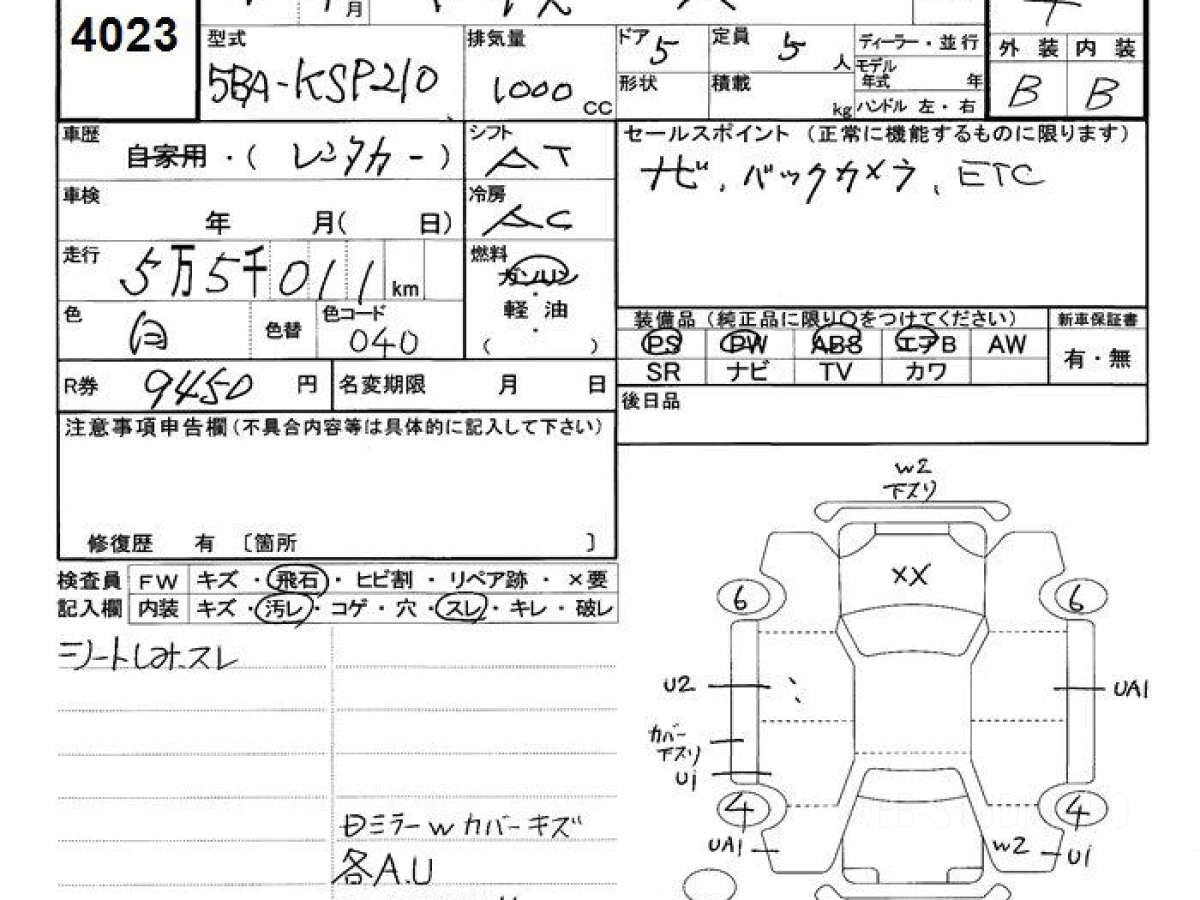 4023
月
型式
5BA-KSP210
排気量
1000 CC
ドア 5
定員 5 人
ディーラー・並行
モデル年式 年
形状
積載 kg
ハンドル 左・右
外装 内装
B B
車歴
自家用・(レンタカー)
シフト
AT
セールスポイント (正常に機能するものに限ります)
ナビ、バックカメラ、ETC
車検
年 月( 日)
冷房
AC
走行
5万5千011 km
燃料
ガソリン
・
軽油
・
( )
色
白
色替
色コード
040
装備品 (純正品に限り〇をつけてください)
新車保証書
PS PW ABS エアB AW
有・無
SR ナビ TV カワ
R券 9450 円
名変期限 月 日
後日品
注意事項申告欄(不具合内容等は具体的に記入して下さい)
修復歴 有 〔箇所 〕
検査員 FW キズ・飛石・ヒビ割・リペア跡・×要
記入欄 内装 キズ・汚レ・コゲ・穴・スレ・キレ・破レ
シートしみ.スレ
日ミラーwカバーキズ
各A.U
W2
下スリ
XX
6
6
U2
UA1
カバー
下スリ
Ui
4
4
UA1
W2
Ui